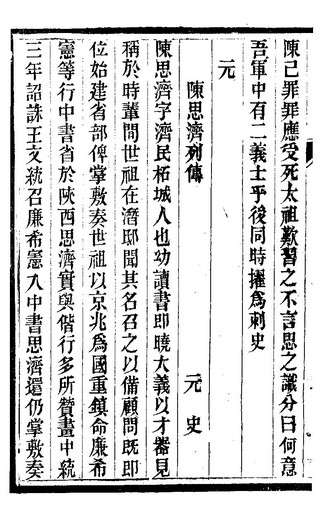 陳己罪罪應受死太祖歎習之不言恩之識分曰何意
吾軍中有二義士乎後同時擢爲刺史
元
陳思濟列傳 元史
陳思濟字濟民柘城人也幼讀書即曉大義以才器見
稱於時輩間世祖在潛邸聞其名召之以備顧問既即
位始建省部俾掌敷奏世祖以京兆爲國重鎮命廉希
憲等行中書省於陝西思濟實與偕行多所贊畫中統
三年詔誅王文統召廉希憲入中書思濟還仍掌敷奏